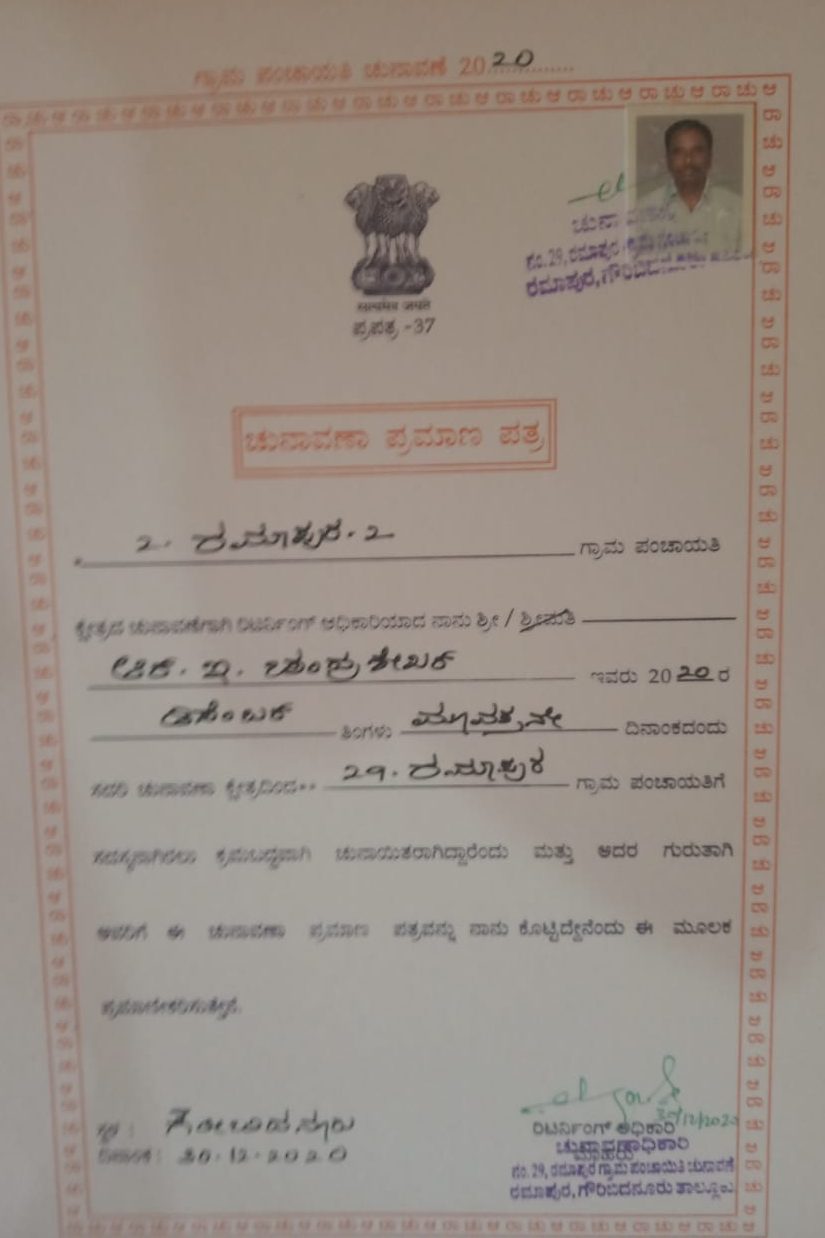 ಗ್ರಾಮ ಪಂಚಾಯತಿ ಚುನಾವಣೆ 2020
सत्यमेव जयते
ಪ್ರಪತ್ರ -37
ನಂ. 29, ರಮಾಪುರ ಗ್ರಾಮ
ರಮಾಪುರ, ಗೌರಿಬಿದನೂರು
ಚುನಾವಣಾ ಪ್ರಮಾಣ ಪತ್ರ
2. ರಮಾಪುರ. 2 ಗ್ರಾಮ ಪಂಚಾಯತಿ
ಕ್ಷೇತ್ರದ ಚುನಾವಣೆಗಾಗಿ ರಿಟರ್ನಿಂಗ್ ಅಧಿಕಾರಿಯಾದ ನಾನು ಶ್ರೀ / ಶ್ರೀಮತಿ
ಆರ್. ವಿ. ಚಂದ್ರಶೇಖರ್ ಇವರು 2020 ರ
ಡಿಸೆಂಬರ್ ತಿಂಗಳು ಮೂವತ್ತನೇ ದಿನಾಂಕದಂದು
ಸದರಿ ಚುನಾವಣಾ ಕ್ಷೇತ್ರದಿಂದ 29. ರಮಾಪುರ ಗ್ರಾಮ ಪಂಚಾಯತಿಗೆ
ಸದಸ್ಯರಾಗಿರಲು ಕ್ರಮಬದ್ಧವಾಗಿ ಚುನಾಯಿತರಾಗಿದ್ದಾರೆಂದು ಮತ್ತು ಅದರ ಗುರುತಾಗಿ
ಅವರಿಗೆ ಈ ಚುನಾವಣಾ ಪ್ರಮಾಣ ಪತ್ರವನ್ನು ನಾನು ಕೊಟ್ಟಿದ್ದೇನೆಂದು ಈ ಮೂಲಕ
ಪ್ರಮಾಣೀಕರಿಸುತ್ತೇನೆ.
ಸ್ಥಳ : ಗೌರಿಬಿದನೂರು
ದಿನಾಂಕ : 30.12.2020
30/12/2020
ರಿಟರ್ನಿಂಗ್ ಅಧಿಕಾರಿ
ಚುನಾವಣಾಧಿಕಾರಿ
ನಂ. 29, ರಮಾಪುರ ಗ್ರಾಮ ಪಂಚಾಯತಿ ಚುನಾವಣೆ
ರಮಾಪುರ, ಗೌರಿಬಿದನೂರು ತಾಲ್ಲೂಕು